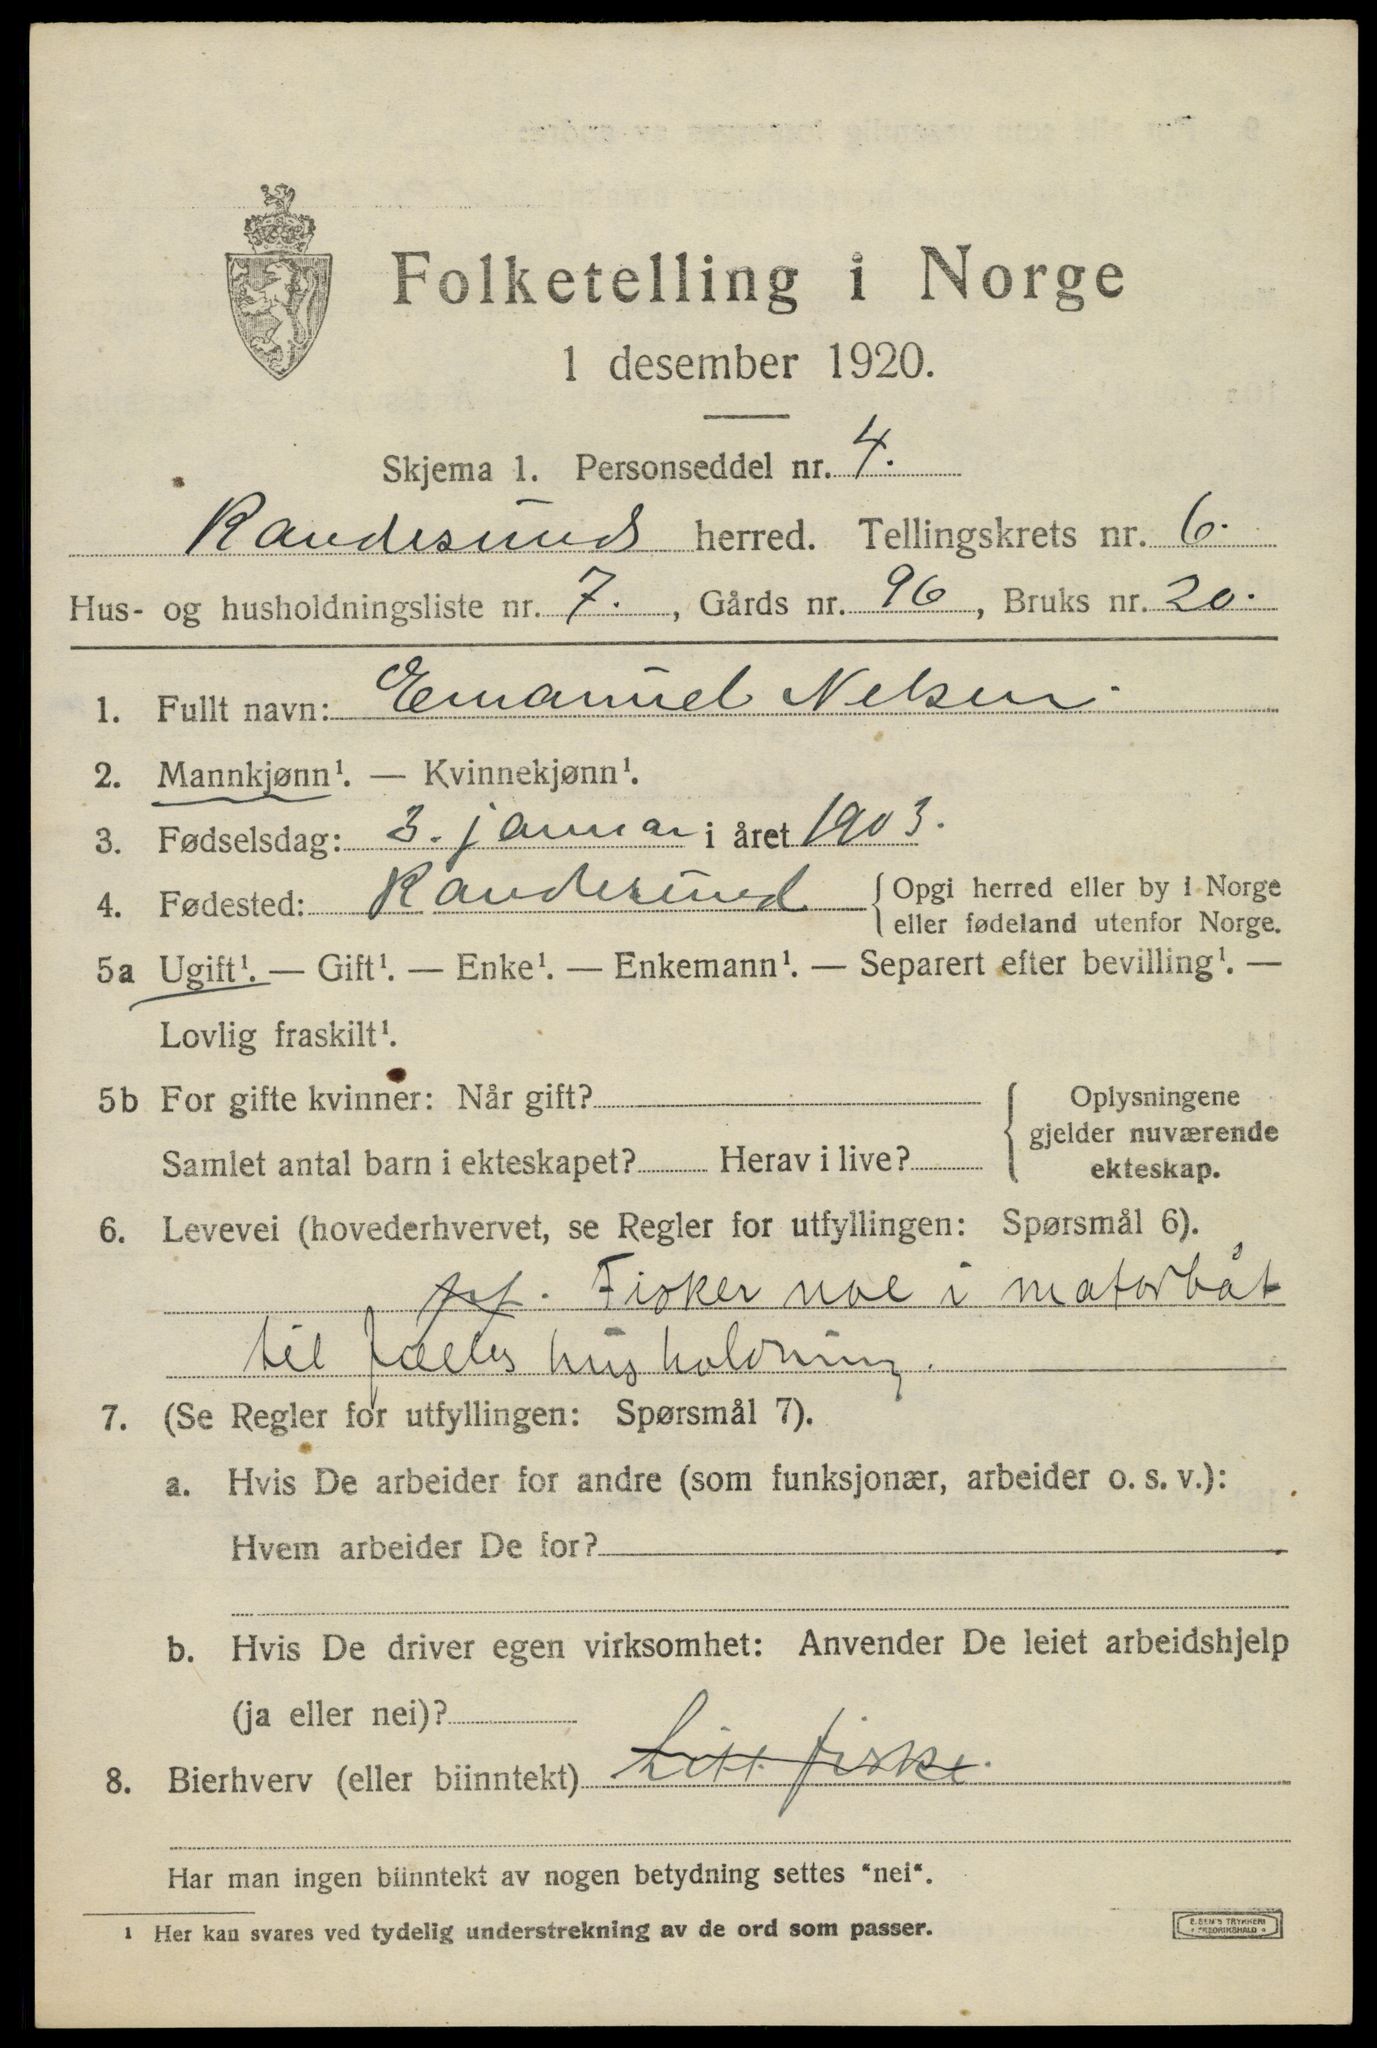 Folketelling i Norge
1 desember 1920.
Skjema 1. Personseddel nr. 4.
Randesund herred. Tellingskrets nr. 6.
Hus- og husholdningsliste nr. 7., Gårds nr. 96, Bruks nr. 20.
1. Fullt navn: Emanuel Nelsen.
2. Mannkjønn¹. — Kvinnekjønn¹.
3. Fødselsdag: 3. januar i året 1903.
4. Fødested: Randesund { Opgi herred eller by i Norge
eller fødeland utenfor Norge.
5a Ugift¹. — Gift¹. — Enke¹. — Enkemann¹. — Separert efter bevilling¹. —
Lovlig fraskilt¹.
5b For gifte kvinner: Når gift?
Samlet antal barn i ekteskapet? Herav i live?
{ Oplysningene
gjelder nuværende
ekteskap.
6. Levevei (hovederhvervet, se Regler for utfyllingen: Spørsmål 6).
Fisker noe i motorbåt
til fælles husholdning.
7. (Se Regler for utfyllingen: Spørsmål 7).
a. Hvis De arbeider for andre (som funksjonær, arbeider o. s. v.):
Hvem arbeider De for?
b. Hvis De driver egen virksomhet: Anvender De leiet arbeidshjelp
(ja eller nei)?
8. Bierhverv (eller biinntekt) Litt fiske.
Har man ingen biinntekt av nogen betydning settes "nei".
¹ Her kan svares ved tydelig understrekning av de ord som passer.
E. SEM'S TRYKKERI
FREDRIKSHALD